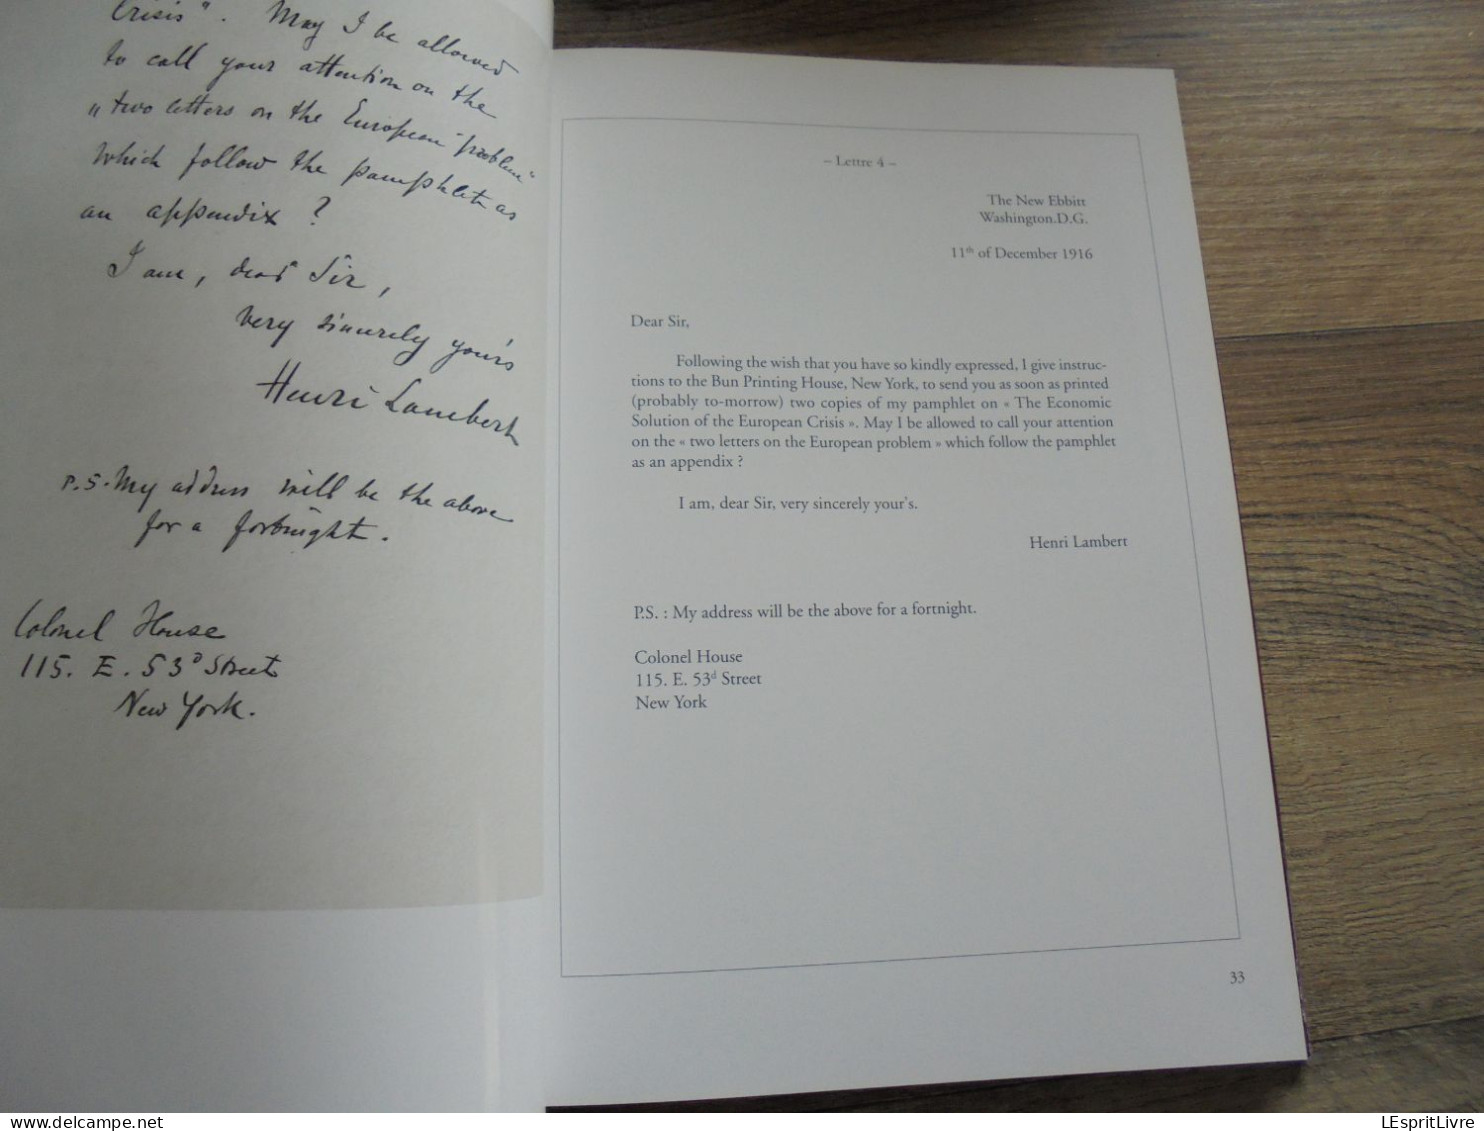 Crisis". May I be allowed
to call your attention on the
„two letters on the European problem"
which follow the pamphlet as
an appendix ?
I am, dear Sir,
very sincerely your's
Henri Lambert
P.S. My address will be the above
for a fortnight.
Colonel House
115. E. 53d Street
New York.
– Lettre 4 –
The New Ebbitt
Washington.D.G.
11th of December 1916
Dear Sir,
Following the wish that you have so kindly expressed, I give instruc-
tions to the Bun Printing House, New York, to send you as soon as printed
(probably to-morrow) two copies of my pamphlet on « The Economic
Solution of the European Crisis ». May I be allowed to call your attention
on the « two letters on the European problem » which follow the pamphlet
as an appendix ?
I am, dear Sir, very sincerely your's.
Henri Lambert
P.S. : My address will be the above for a fortnight.
Colonel House
115. E. 53d Street
New York
33
LEspritLivre